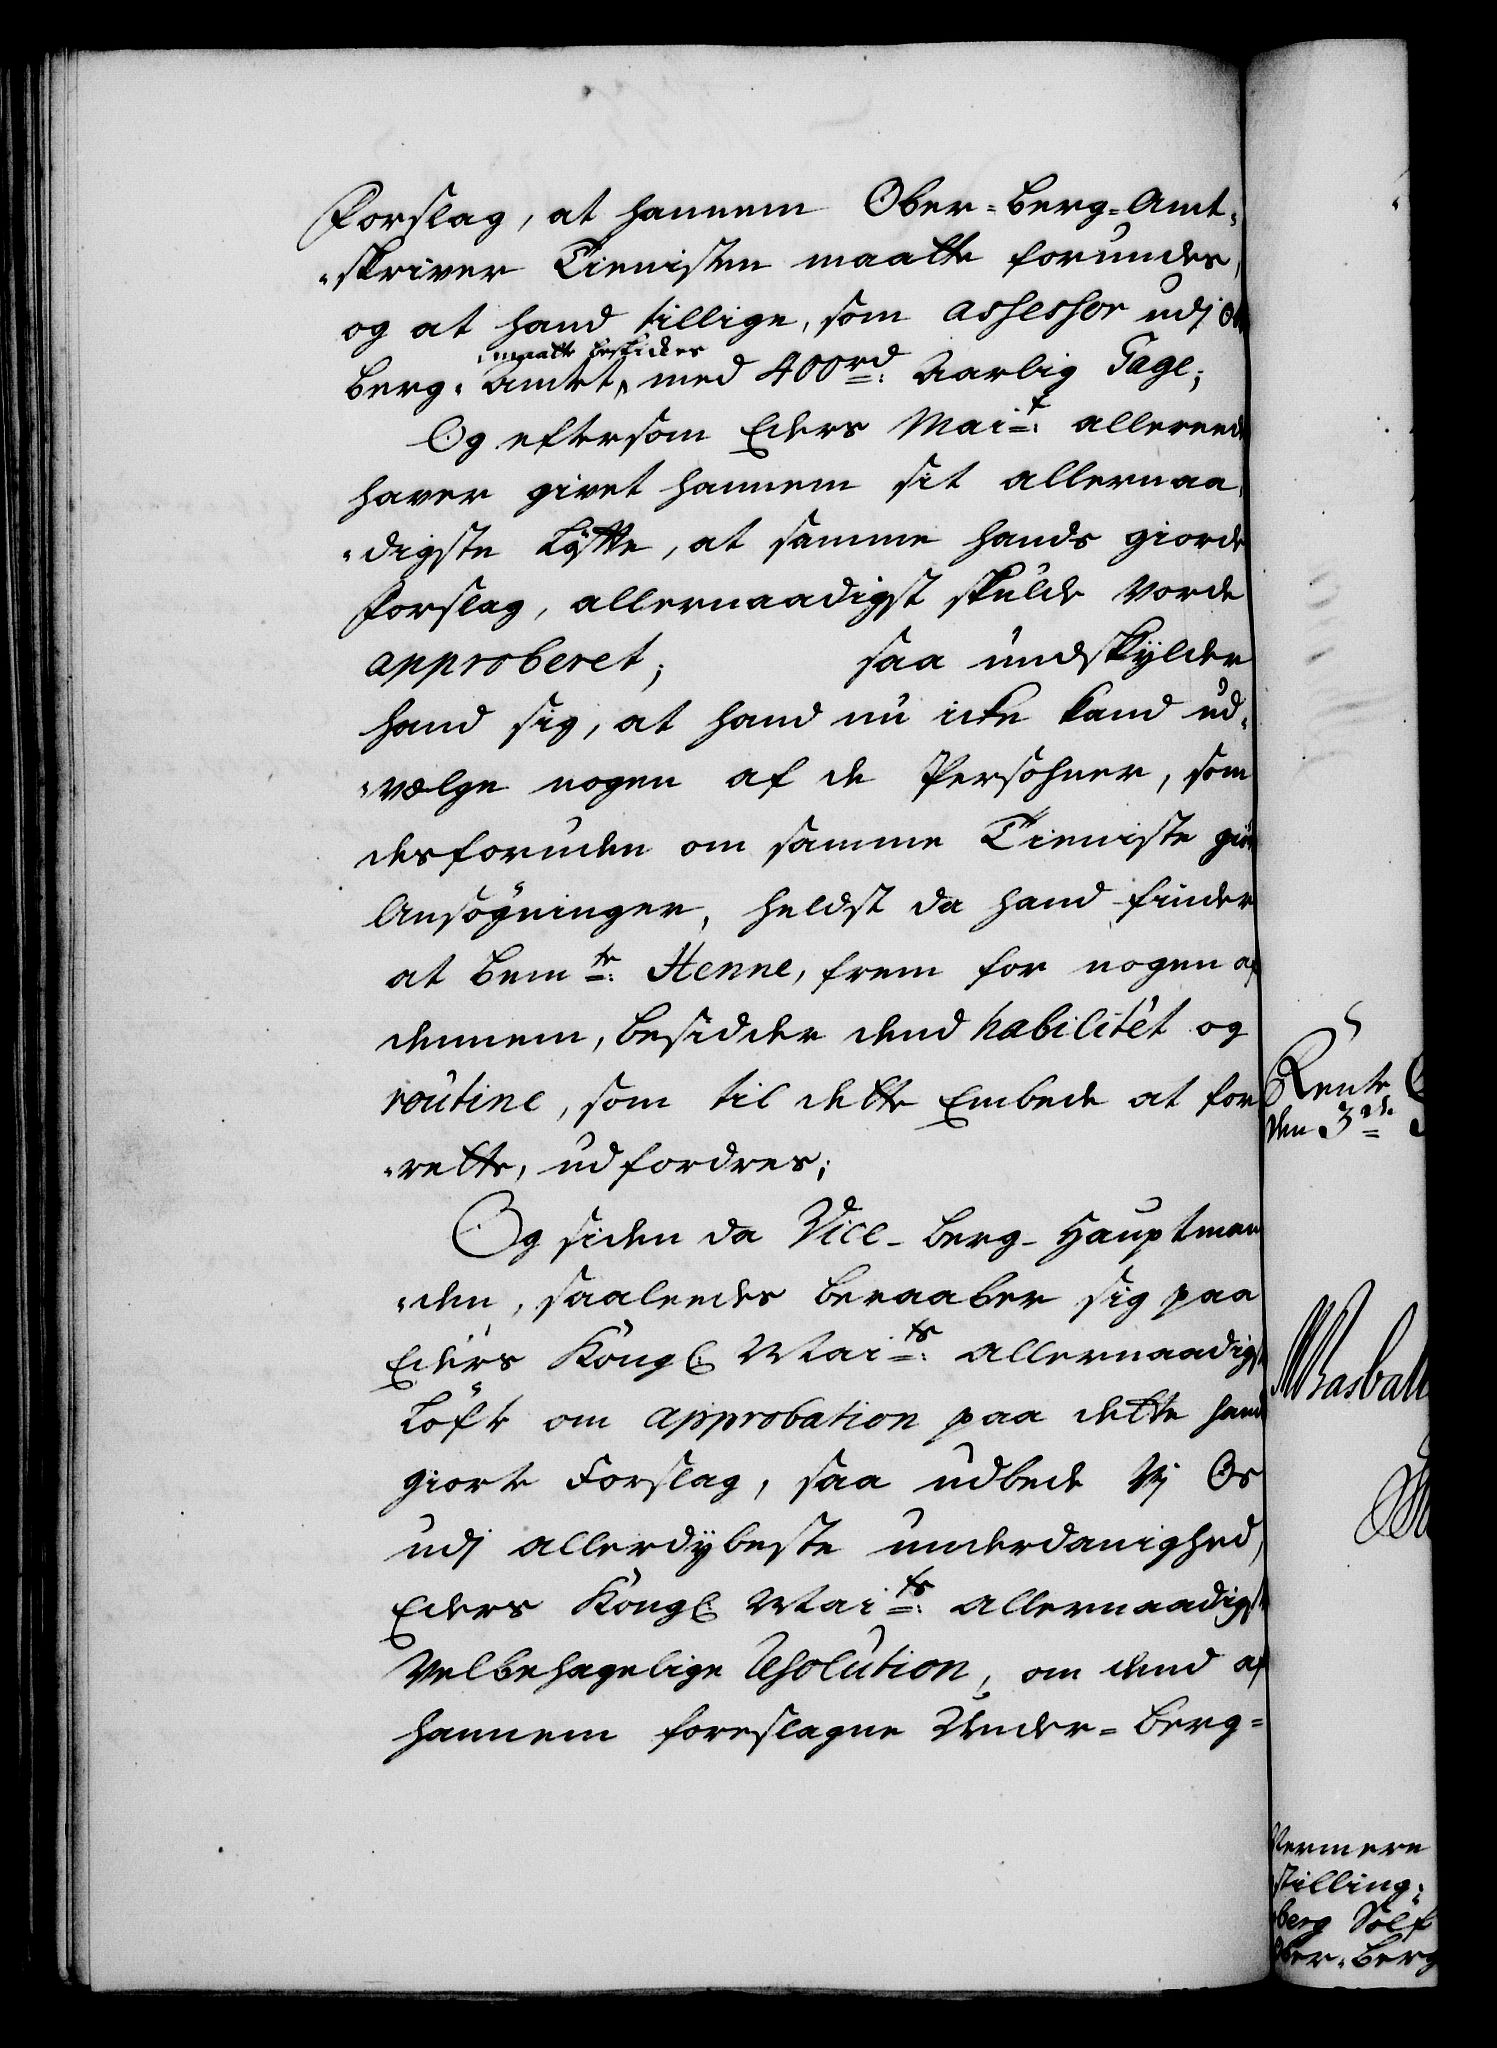 Forslag, at hannem Ober-Berg-Amt-
-skriver Tienisten maatte forundes,
og at hand tillige, som assessor udj Ob
maatte beskickes
Berg-Amtet, med 400rd: Aarlig Gage;
Og eftersom Eders Mait: allereede
haver givet hannem sit allernaa-
-digste Løfte, at samme hands giorde
Forslag, allernaadigst skulde vorde
approberet; saa undskylder
hand sig, at hand nu icke kand ud-
-vælge nogen af de Persohner, som
desforuden om samme Tieniste giør
Ansøgninger, heldst da hand finder
at bemte: Henne, frem for nogen af
dennem, besidder dend habilitet og
routine, som til dette Embede at for
-rette, udfordres;
Og siden da Vice-Berg-Hauptman
-den, saaleedes beraaber sig paa
Eders Kongl: Maits: allernaadigste
Løfte om approbation paa dette hands
giorte Forslag, saa udbede Vj Os
udj allerdybeste underdanighed,
Eders Kongl: Maits: allernaadigste
Velbehagelige Resolution, om dend af
hannem foreslagne Under-Berg-
Rente
den 3de
Vermere
stilling;
berg Sølf
Ober-Berg